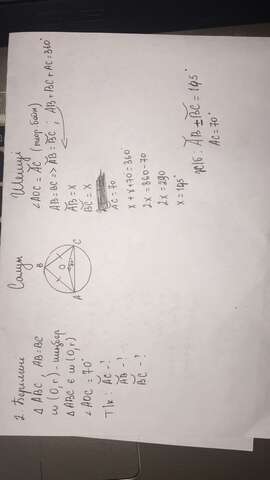 2. Берилген
△ ABC, AB=BC
ω (O, r) - шеңбер
△ABC ∈ ω (O, r)
∠AOC = 70°
Т/к: AC - ?
AB - ?
BC - ?
Салуу
B
O
70°
A
C
Шешуу
∠AOC = AC (теор. бойн)
AB=BC => AB=BC; AB+BC+AC=360°
AB = x
BC = x
AC = 70
x + x + 70 = 360°
2x = 360-70
2x = 290
x = 145°
AB = BC = 145°
AC = 70°